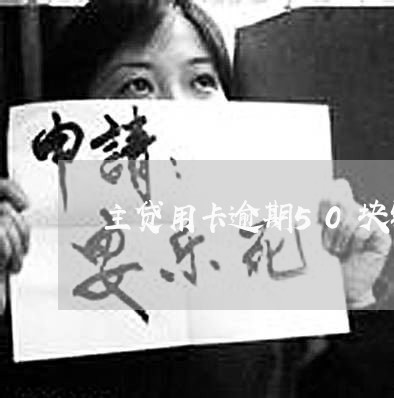 申請:
主贷用卡逾期50块
安乐死